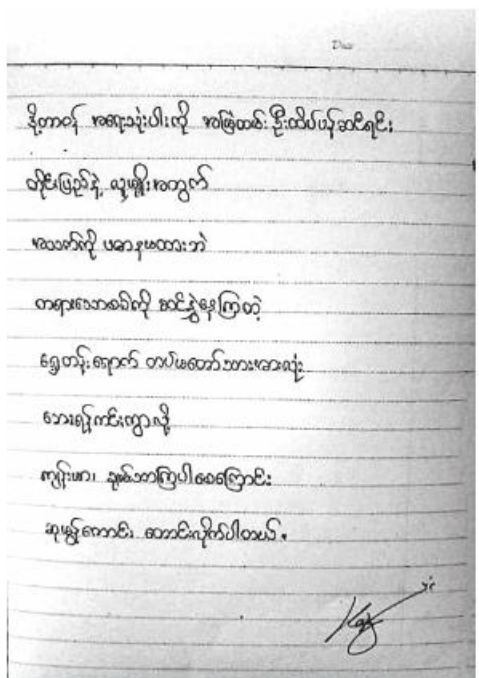 Date
ဒို့တာဝန် အရေးသုံးပါးကို အမြဲထမ်း ဦးထိပ်ပန်ဆင်ရင်း
တိုင်းပြည်နဲ့ လူမျိုးအတွက်
အသက်ကို ပဓာနမထားဘဲ
တရားသောစစ်ကို ဆင်နွှဲနေကြတဲ့
ရှေ့တန်းရောက် တပ်မတော်သားအားလုံး
ဘေးရန်ကင်းကွာလို့
ကျန်းမာ၊ ချမ်းသာကြပါစေကြောင်း
ဆုမွန်ကောင်း တောင်းလိုက်ပါတယ်။